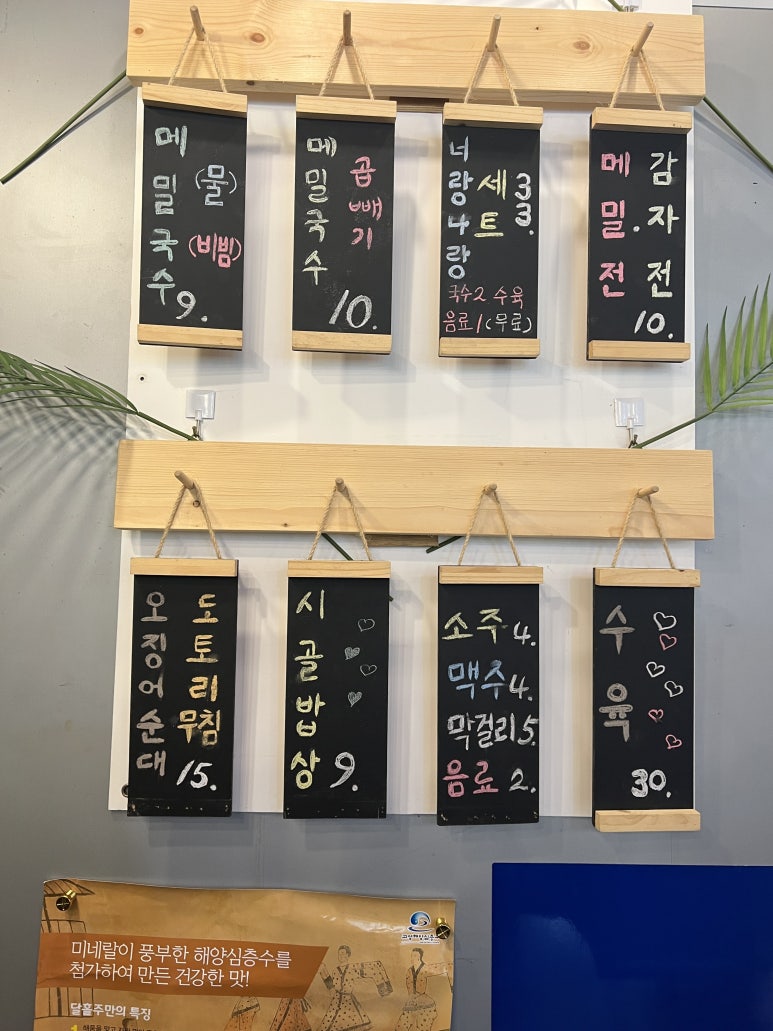 메밀국수 (물) (비빔) 9.
메밀국수 곱빼기 10.
너랑나랑 세트 33.
국수2 수육
음료1 (무료)
메밀전. 감자전 10.
오징어순대 도토리무침 15.
시골밥상 9.
소주 4.
맥주 4.
막걸리 5.
음료 2.
수육 30.
미네랄이 풍부한 해양심층수를
첨가하여 만든 건강한 맛!
달홀주만의 특징